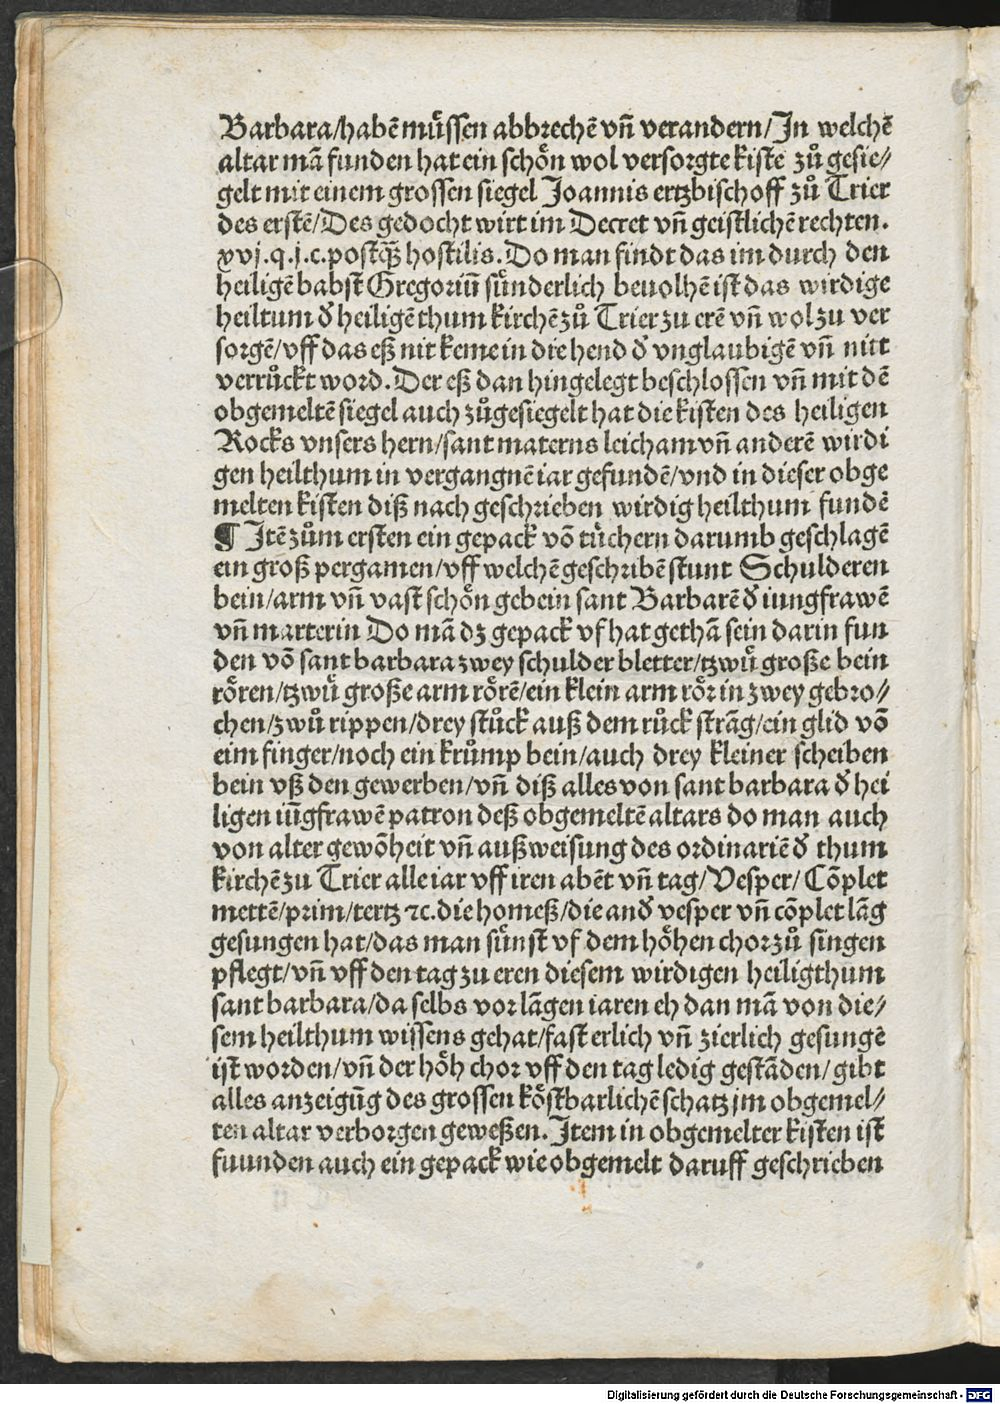 Barbara/habē mu̇ſſen abbrechē vn̄ verandern/In welchē
altar mā funden hat ein ſchȯn wol verſorgte kiſte zů geſie⸗
gelt mit einem groſſen ſiegel Joannis ertzbiſchoff zů Trier
des erſtē/Des gedocht wirt im Decret vn̄ geiſtlichē rechten.
xvj.q.j.c.poſtꝙ̄ hoſtilis. Do man findt das im durch den
heiligē babſt Gregoriū ſu̇nderlich beuolhē iſt das wirdige
heiltum ď heiligē thum kirchē zů Trier zu erē vn̄ wol zu ver
ſorgē/vff das eß nit keme in die hend ď vnglaubigē vn̄ nitt
verrůckt word. Der eß dan hingelegt beſchloſſen vn̄ mit dē
obgemeltē ſiegel auch zůgeſiegelt hat die kiſten des heiligen
Rocks vnſers hern/ſant materns leicham vn̄ anderē wirdi
gen heilthum in vergangnē iar gefundē/vnd in dieſer obge
melten kiſten diß nach geſchrieben wirdig heilthum fundē
¶ Itē zům erſten ein gepack vō tu̇chern darumb geſchlagē
ein groß pergamen/vff welchē geſchribē ſtunt Schulderen
bein/arm vn̄ vaſt ſchȯn gebein ſant Barbarē ď iungfrawē
vn̄ marterin Do mā dz gepack vf hat gethā ſein darin fun
den vō ſant barbara zwey ſchulder bletter/tzwů große bein
rȯren/tzwů große arm rȯrē/ein klein arm rȯr in zwey gebro⸗
chen/zwů rippen/drey ſtůck auß dem růck ſtrāg/ein glid vō
eim finger/noch ein krůmp bein/auch drey kleiner ſcheiben
bein vß den gewerben/vn̄ diß alles von ſant barbara ď hei
ligen iūgfrawē patron deß obgemeltē altars do man auch
von alter gewōheit vn̄ außweiſung des ordinariē ď thum
kirchē zu Trier alle iar vff iren abēt vn̄ tag/Veſper/Cōplet
mettē/prim/tertz ⁊c. die homeß/die anď veſper vn̄ cōplet lāg
geſungen hat/das man ſu̇nſt vf dem hȯhen chor zů ſingen
pflegt/vn̄ vff den tag zu eren dieſem wirdigen heiligthum
ſant barbara/da ſelbs vor lāgen iaren eh dan mā von die⸗
ſem heilthum wiſſens gehat/faſt erlich vn̄ zierlich geſungē
iſt worden/vn̄ der hȯh chor vff den tag ledig geſtāden/gibt
alles anzeigūg des groſſen kȯſtbarlichē ſchatz jm obgemel⸗
ten altar verborgen geweßen. Item in obgemelter kiſten iſt
fuunden auch ein gepack wie obgemelt daruff geſchrieben
Digitalisierung gefördert durch die Deutsche Forschungsgemeinschaft - DFG